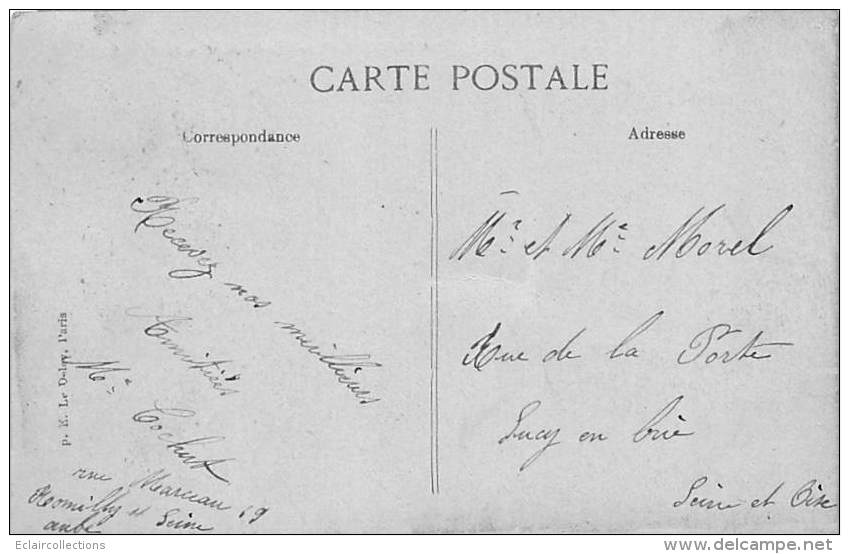 CARTE POSTALE
Correspondance
Adresse
Recevez nos meilleurs
Amitiés
Me Cochut
rue Marceau 19
Romilly s/ Seine
aube
Mr et Me Morel
Rue de la Porte
Sucy en brie
Seine et Oise
p. E. Le Deley, Paris
Eclaircollections
www.delcampe.net